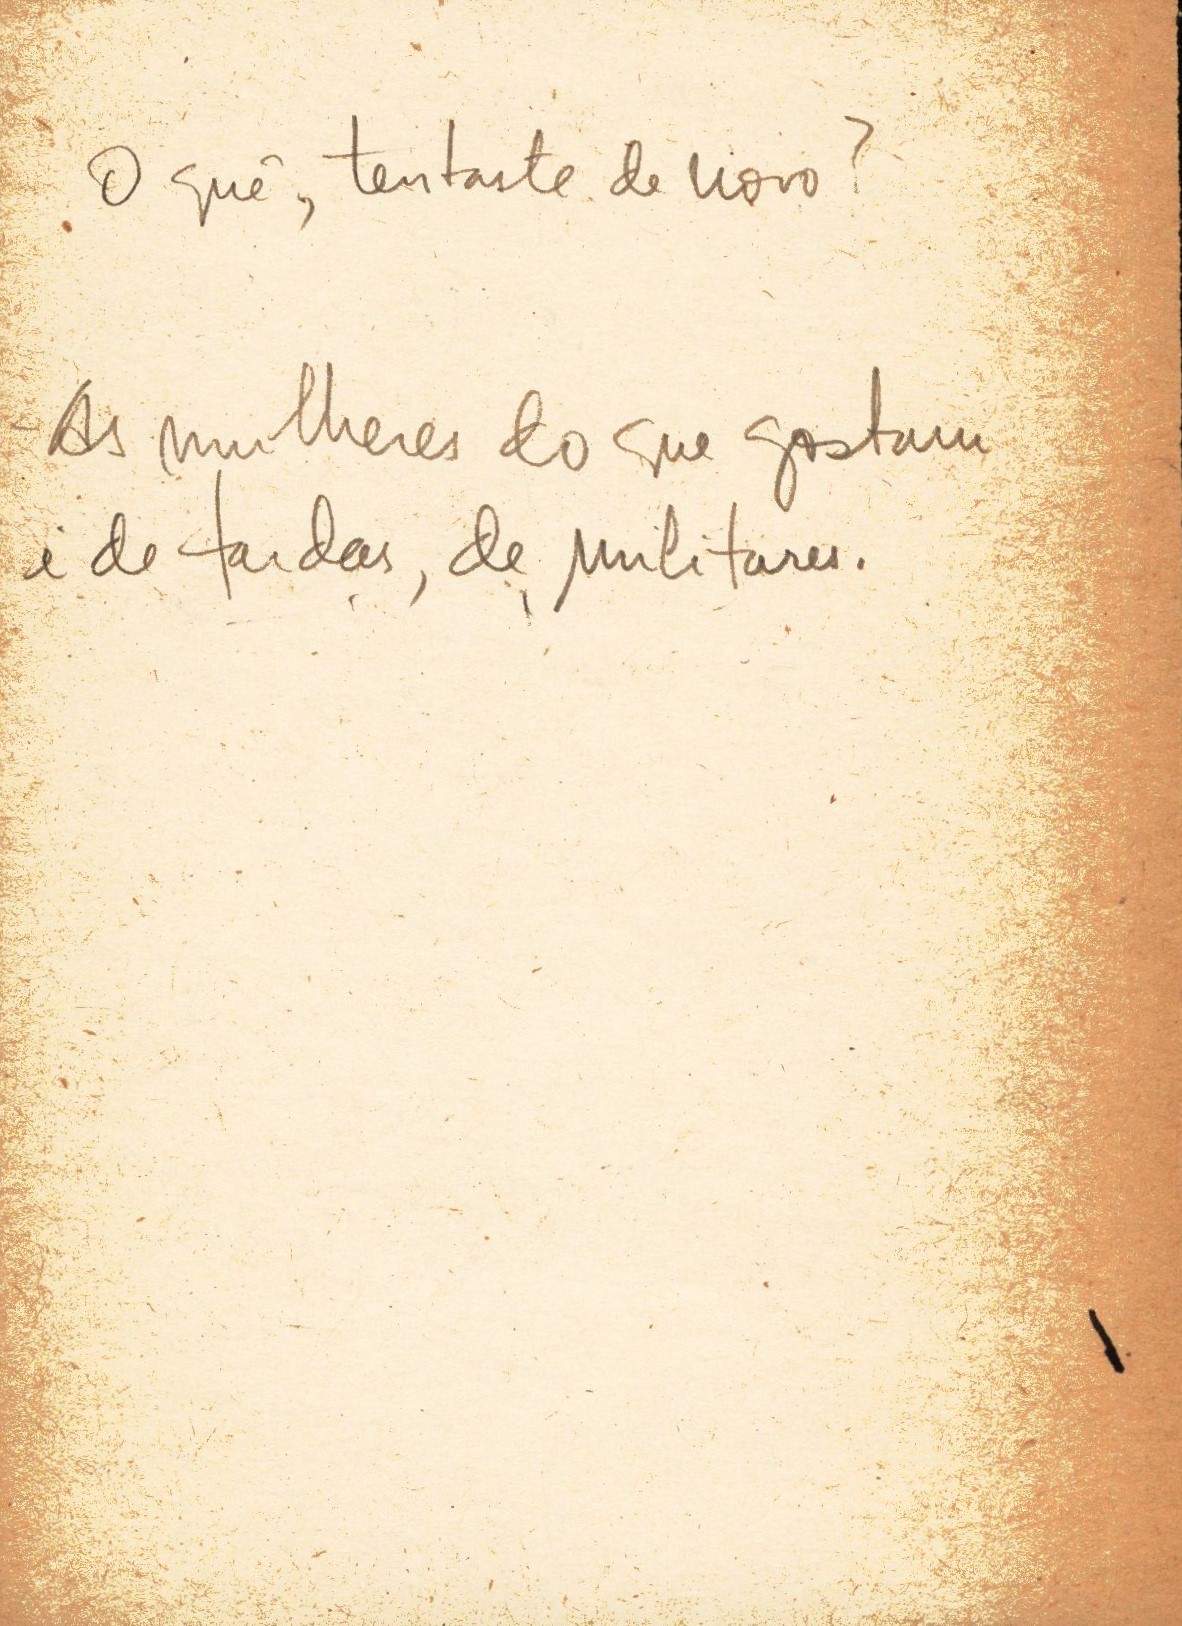 O quê, tentaste de novo?
As mulheres do que gostam
é de fardas, de militares.